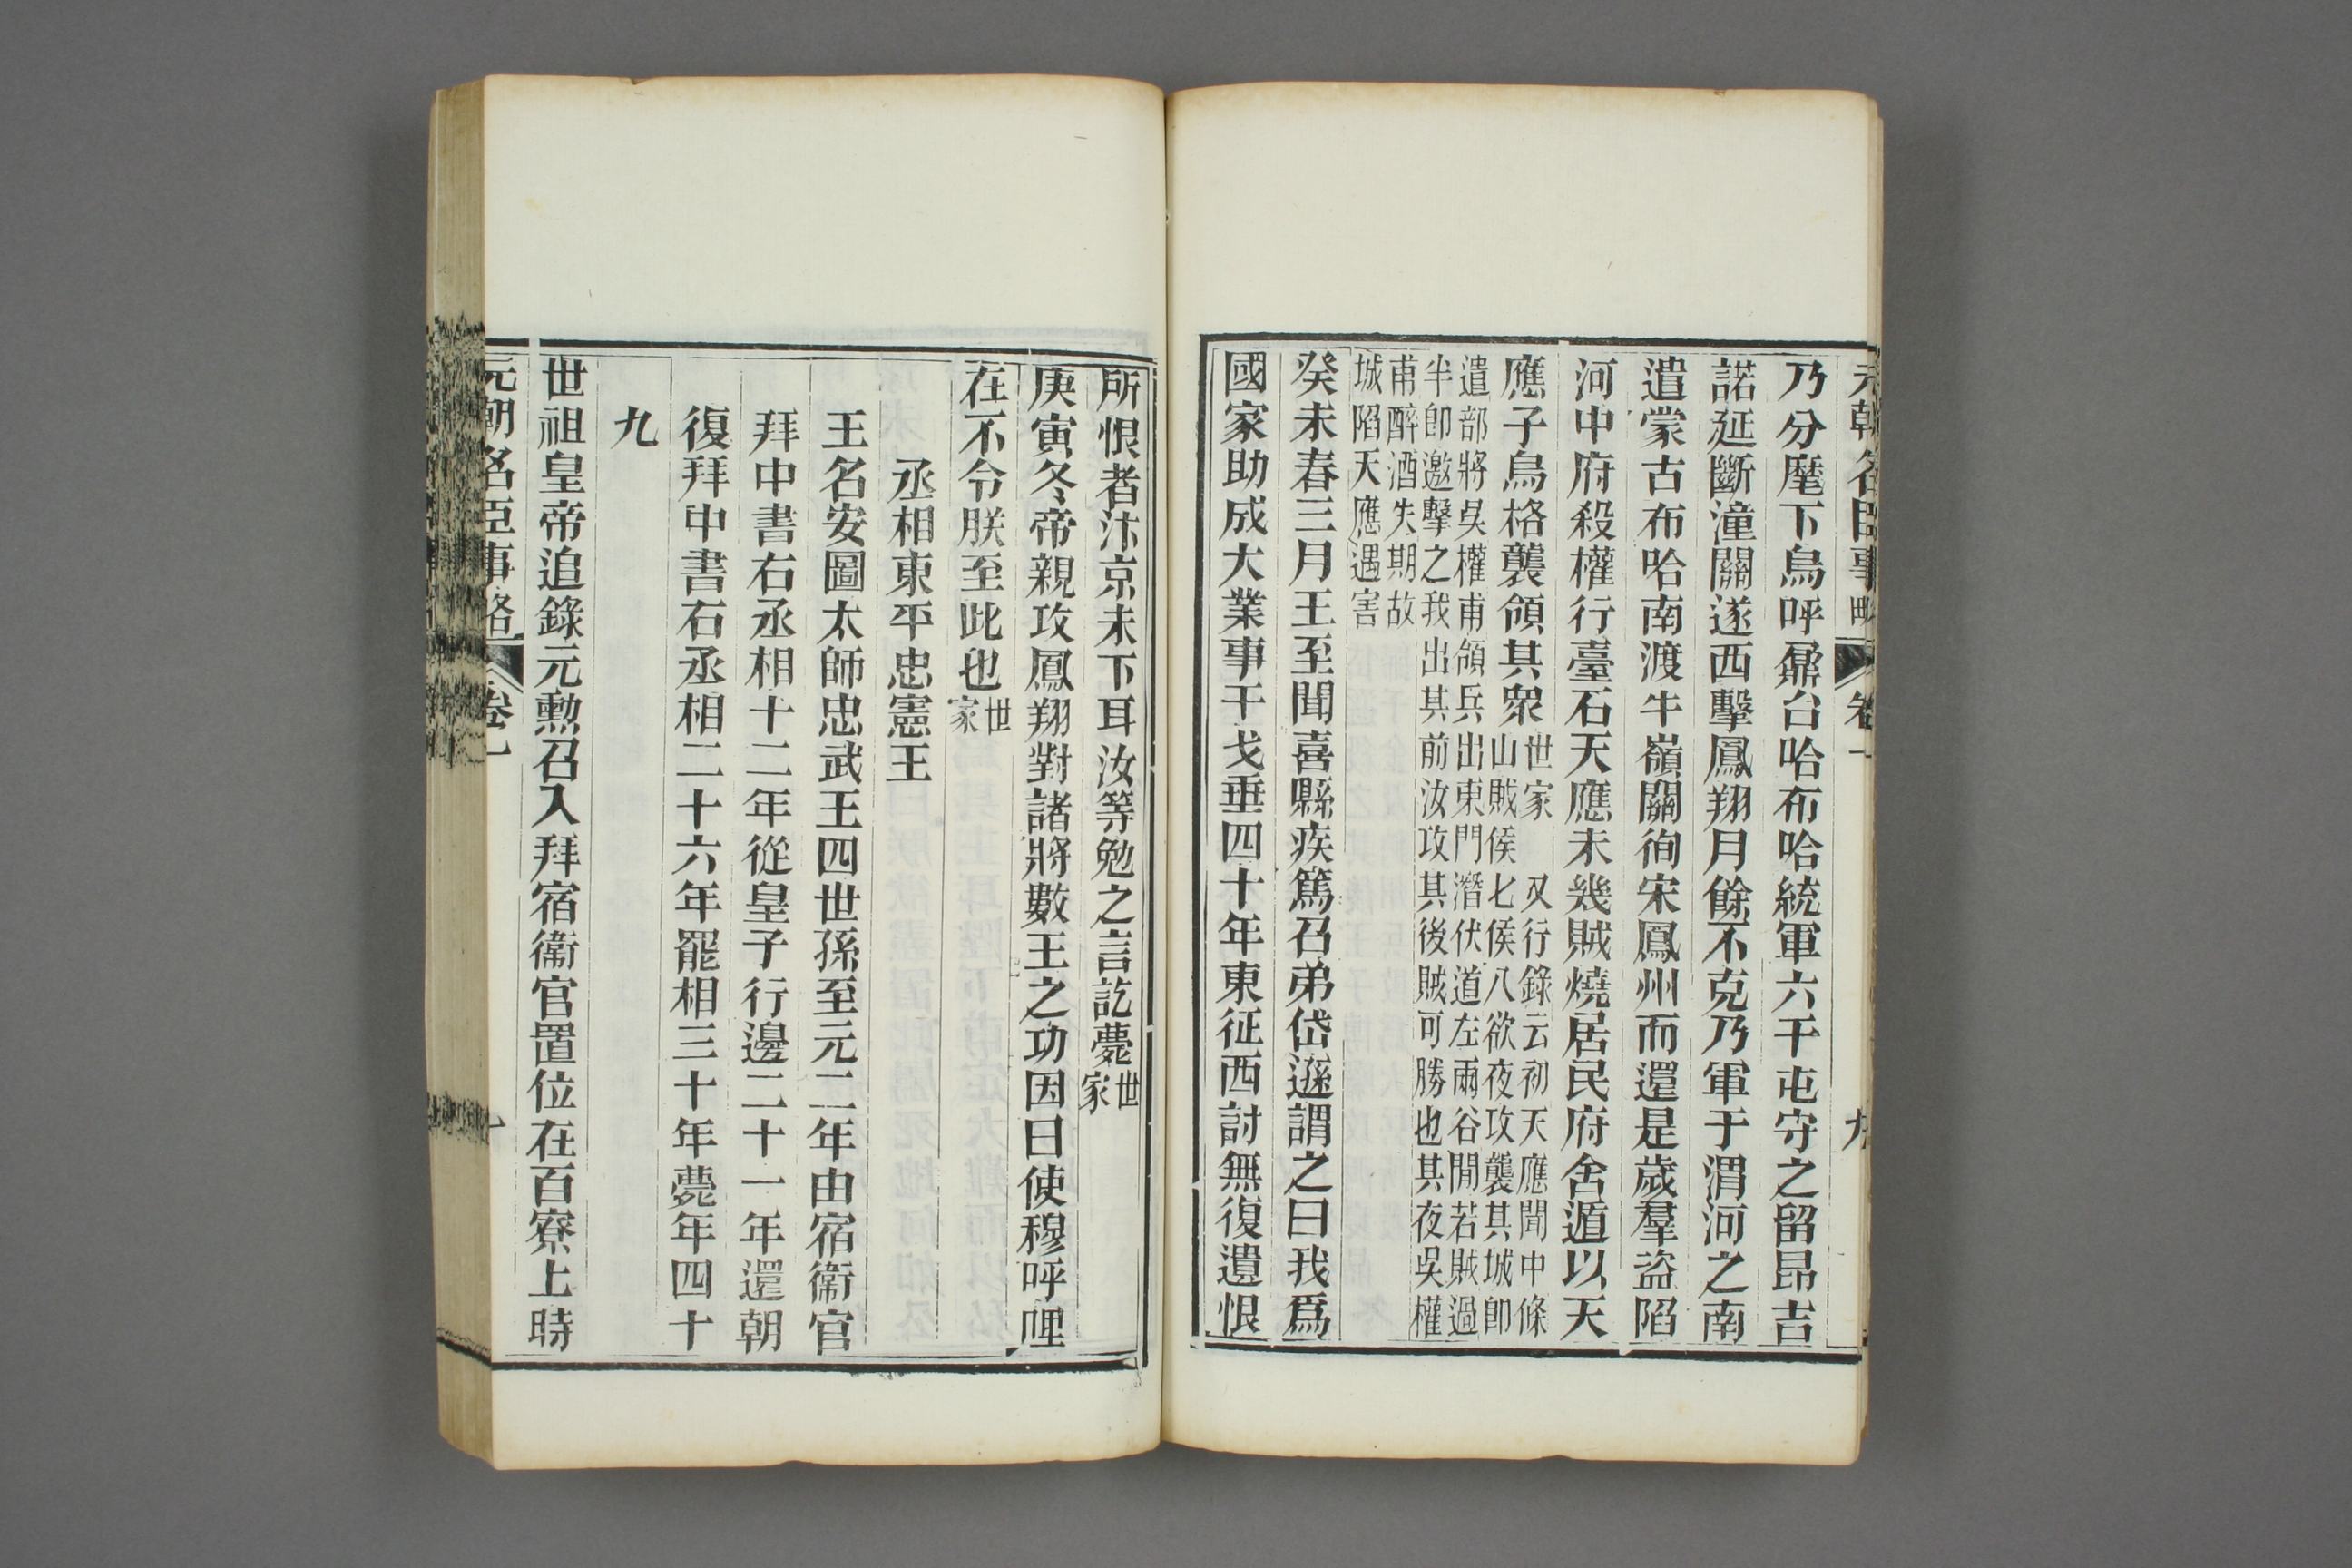 元朝名臣事略 卷一 九
乃分麾下烏呼鼐台哈布哈統軍六千屯守之留昂吉
諾延斷潼關遂西擊鳳翔月餘不克乃軍于渭河之南
遣蒙古布哈南渡牛嶺關徇宋鳳州而還是歲羣盜陷
河中府殺權行臺石天應未幾賊燒居民府舍遁以天
應子烏格襲領其衆世家 又行錄云初天應聞中條
山賊侯七侯八欲夜攻襲其城卽
遣部將吳權甫領兵出東門潛伏道左兩谷閒若賊過
半卽邀擊之我出其前汝攻其後賊可勝也其夜吳權
甫醉酒失期故
城陷天應遇害
癸未春三月王至聞喜縣疾篤召弟岱遜謂之曰我爲
國家助成大業事干戈垂四十年東征西討無復遺恨
所恨者汴京未下耳汝等勉之言訖薨世家
庚寅冬帝親攻鳳翔對諸將數王之功因曰使穆呼哩
在不令朕至此也世家
丞相東平忠憲王
王名安圖太師忠武王四世孫至元二年由宿衞官
拜中書右丞相十二年從皇子行邊二十一年還朝
復拜中書右丞相二十六年罷相三十年薨年四十
九
世祖皇帝追錄元勳召入拜宿衞官置位在百寮上時
元朝名臣事略 卷一 十